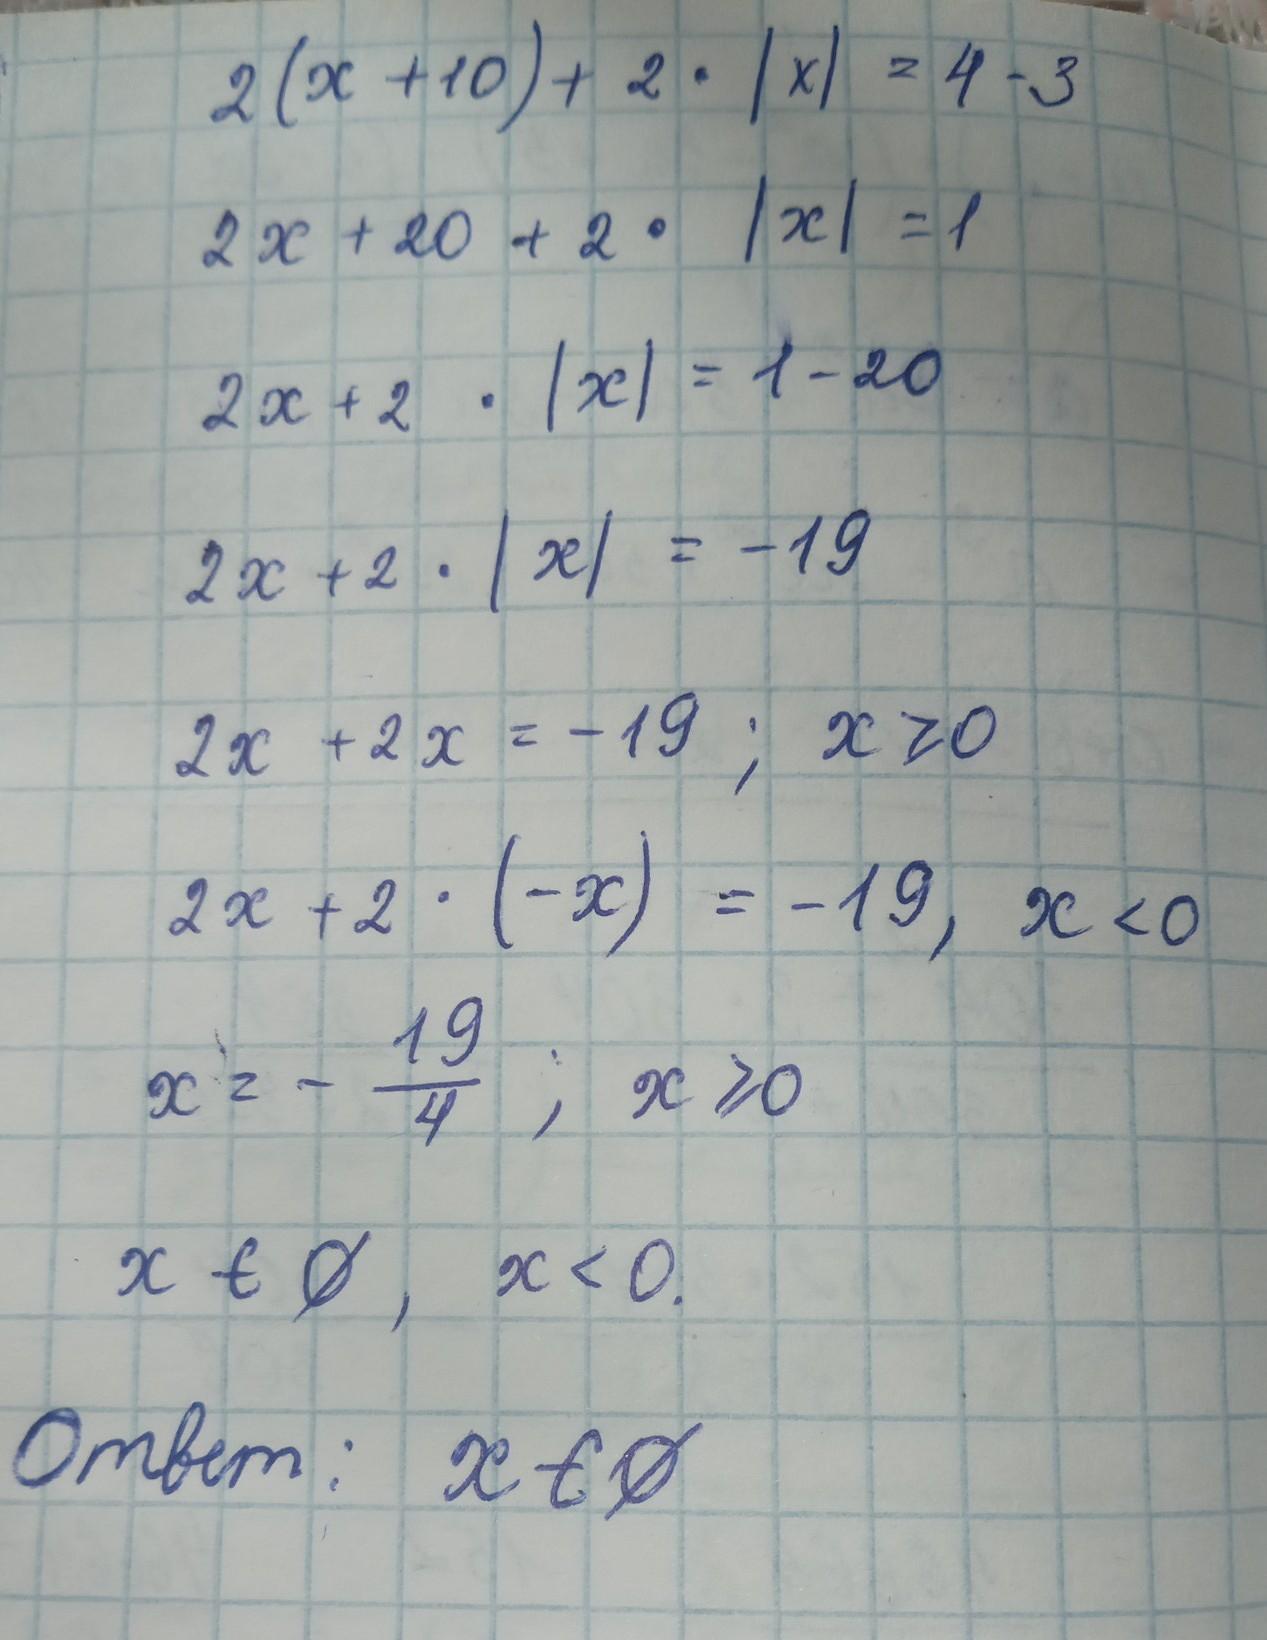 2(x+10)+2·|x|=4-3
2x+20+2·|x|=1
2x+2·|x|=1-20
2x+2·|x|=-19
2x+2x=-19; x≥0
2x+2·(-x)=-19, x<0
x=-19/4; x≥0
x∈∅, x<0.
Ответ: x∈∅